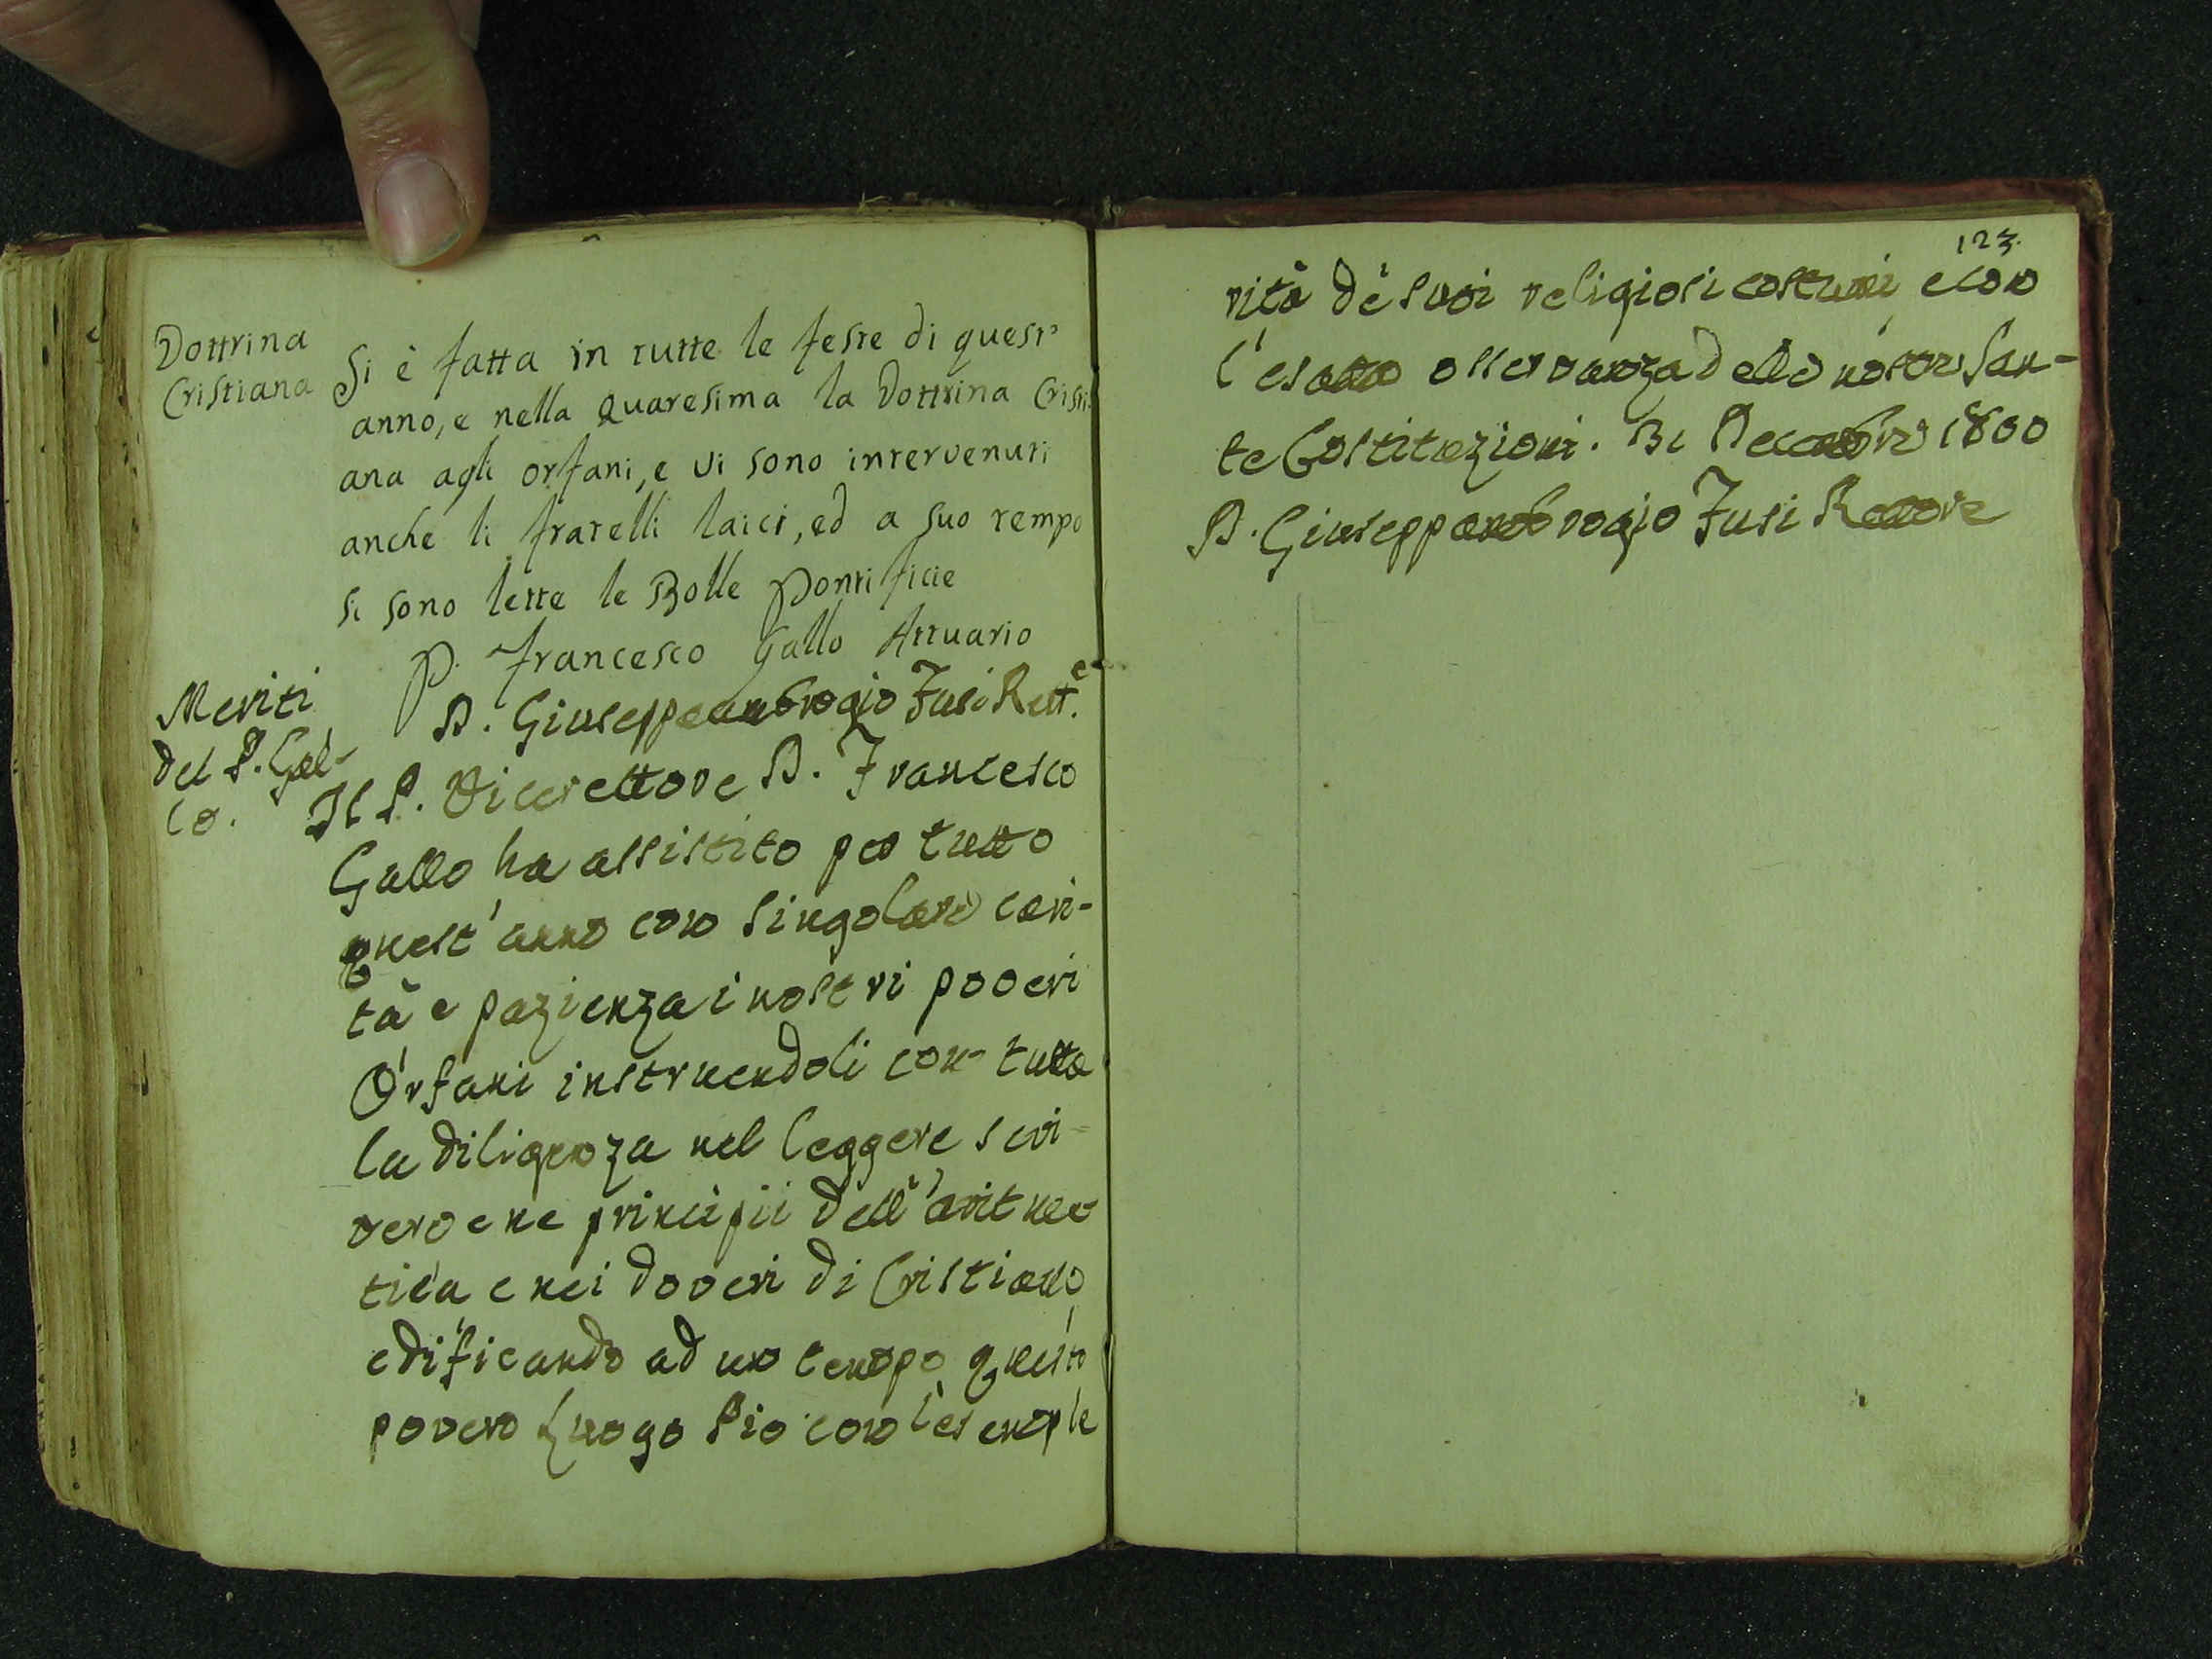 Dottrina
Cristiana
Si è fatta in tutte le feste di quest'
anno, e nella Quaresima la Dottrina Cristi-
ana agli orfani, e vi sono intervenuti
anche li fratelli laici, ed a suo tempo
si sono lette le Bolle Pontificie
P. Francesco Gallo Attuario
D. Giuseppeambrogio Fusi Rett.e
Meriti
del P. Gal-
lo.
Il P. Vicerettore D. Francesco
Gallo ha assistito per tutto
quest'anno con singolare cari-
tà e pazienza i nostri poveri
Orfani instruendoli con tutta
la diligenza nel leggere scri-
vere e ne principii dell'aritme-
tica e nei doveri di Cristiano,
edificando ad un tempo questo
povero Luogo Pio con l'esemple
123.
rità de suoi religiosi costumi e con
l'esatta osservanza delle nostre San-
te Costituzioni. 31 Decembre 1800
D. Giuseppambrogio Fusi Rettore